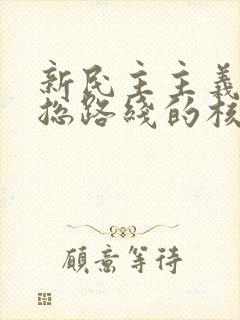 新民主主義
總路綫的核
願意等待